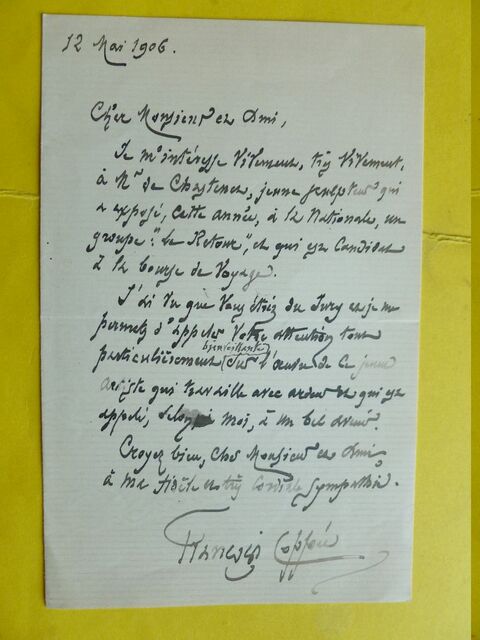 12 Mai 1906.
Cher Monsieur et Ami,
Je m'intéresse vivement, très vivement,
à Mr de Chastenet, jeune sculpteur qui
a exposé, cette année, à la Nationale, un
groupe: "Le Retour", et qui est candidat
à la bourse de voyage.
J'ai vu que vous étiez du Jury et je me
permets d'appeler votre attention tout
bienveillante
particulièrement sur l'œuvre de ce jeune
artiste qui travaille avec ardeur et qui est
appelé, selon moi, à un bel avenir.
Croyez bien, cher Monsieur et Ami,
à ma fidèle et très cordiale sympathie.
François Coppée